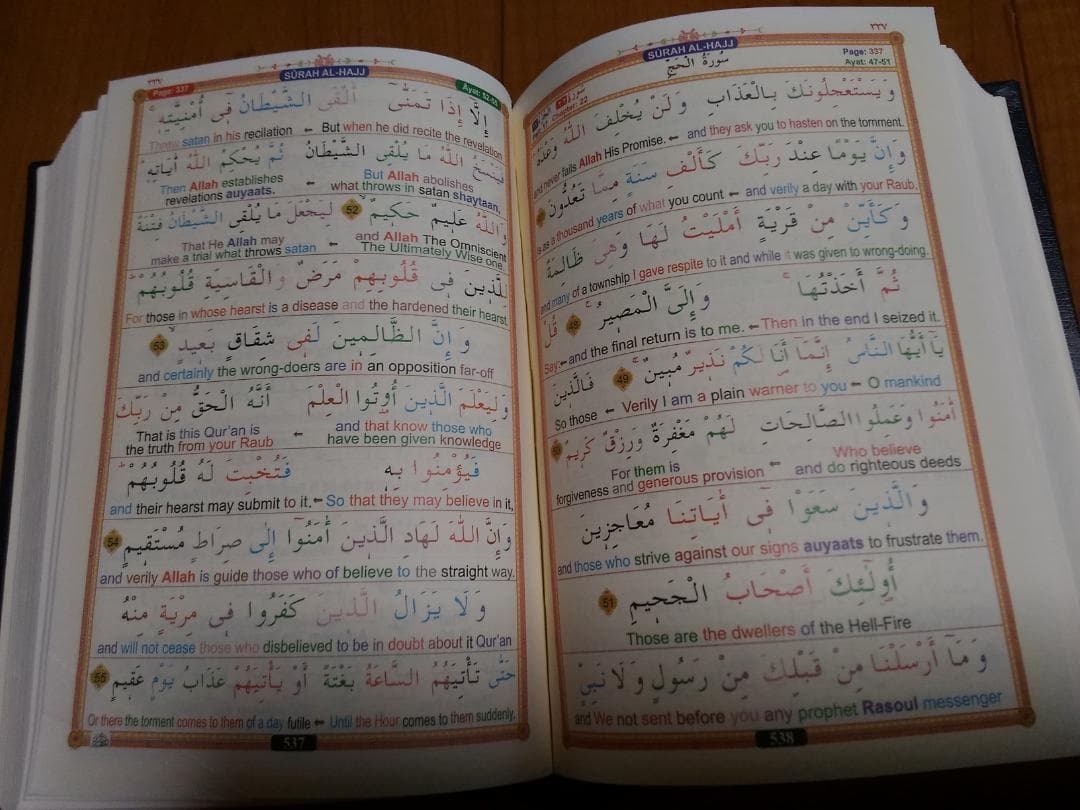 SŪRAH AL-HAJJ
سُورَةُ الْحَجِّ
٣٣٧
Page: 337
Ayat: 47-51
Chapter: 22
وَيَسْتَعْجِلُونَكَ بِالْعَذَابِ وَلَنْ يُخْلِفَ اللّٰهُ وَعْدَهُ
and never fails Allah His Promise. ← and they ask you to hasten on the torment.
وَإِنَّ يَوْمًا عِنْدَ رَبِّكَ كَأَلْفِ سَنَةٍ مِمَّا تَعُدُّونَ
is as a thousand years of what you count ← and verily a day with your Raub.
وَكَأَيِّنْ مِنْ قَرْيَةٍ أَمْلَيْتُ لَهَا وَهِيَ ظَالِمَةٌ
and many of a township I gave respite to it and while it was given to wrong-doing.
ثُمَّ أَخَذْتُهَا وَإِلَيَّ الْمَصِيرُ 48 قُلْ
Say: ← and the final return is to me. ← Then in the end I seized it.
يَا أَيُّهَا النَّاسُ إِنَّمَا أَنَا لَكُمْ نَذِيرٌ مُبِينٌ 49 فَالَّذِينَ
So those ← Verily I am a plain warner to you ← O mankind
آمَنُوا وَعَمِلُوا الصَّالِحَاتِ لَهُمْ مَغْفِرَةٌ وَرِزْقٌ كَرِيمٌ 50
For them is forgiveness and generous provision ← Who believe and do righteous deeds
وَالَّذِينَ سَعَوْا فِي آيَاتِنَا مُعَاجِزِينَ
and those who strive against our signs auyaats to frustrate them.
أُولَٰئِكَ أَصْحَابُ الْجَحِيمِ 51
Those are the dwellers of the Hell-Fire
وَمَا أَرْسَلْنَا مِنْ قَبْلِكَ مِنْ رَسُولٍ وَلَا نَبِيٍّ
and We not sent before you any prophet Rasoul messenger
538
Page: 337
SŪRAH AL-HAJJ
Ayat: 52-55
إِلَّا إِذَا تَمَنَّىٰ أَلْقَى الشَّيْطَانُ فِي أُمْنِيَّتِهِ
Throw satan in his recilation ← But when he did recite the revelation
فَيَنْسَخُ اللّٰهُ مَا يُلْقِي الشَّيْطَانُ ثُمَّ يُحْكِمُ اللّٰهُ آيَاتِهِ
Then Allah establishes revelations auyaats. ← But Allah abolishes what throws in satan shaytaan,
وَاللّٰهُ عَلِيمٌ حَكِيمٌ 52 لِيَجْعَلَ مَا يُلْقِي الشَّيْطَانُ فِتْنَةً
That He Allah may make a trial what throws satan ← and Allah The Omniscient The Ultimately Wise one
لِلَّذِينَ فِي قُلُوبِهِمْ مَرَضٌ وَالْقَاسِيَةِ قُلُوبُهُمْ
For those in whose hearst is a disease and the hardened their hearst.
وَإِنَّ الظَّالِمِينَ لَفِي شِقَاقٍ بَعِيدٍ 53
and certainly the wrong-doers are in an opposition far-off
وَلِيَعْلَمَ الَّذِينَ أُوتُوا الْعِلْمَ أَنَّهُ الْحَقُّ مِنْ رَبِّكَ
That is this Qur'an is the truth from your Raub ← and that know those who have been given knowledge
فَيُؤْمِنُوا بِهِ فَتُخْبِتَ لَهُ قُلُوبُهُمْ
and their hearst may submit to it. ← So that they may believe in it,
وَإِنَّ اللّٰهَ لَهَادِ الَّذِينَ آمَنُوا إِلَىٰ صِرَاطٍ مُسْتَقِيمٍ 54
and verily Allah is guide those who of believe to the straight way.
وَلَا يَزَالُ الَّذِينَ كَفَرُوا فِي مِرْيَةٍ مِنْهُ
and will not cease those who disbelieved to be in doubt about it Qur'an
حَتَّىٰ تَأْتِيَهُمُ السَّاعَةُ بَغْتَةً أَوْ يَأْتِيَهُمْ عَذَابُ يَوْمٍ عَقِيمٍ 55
Or there the torment comes to them of a day futile ← Until the Hour comes to them suddenly.
537